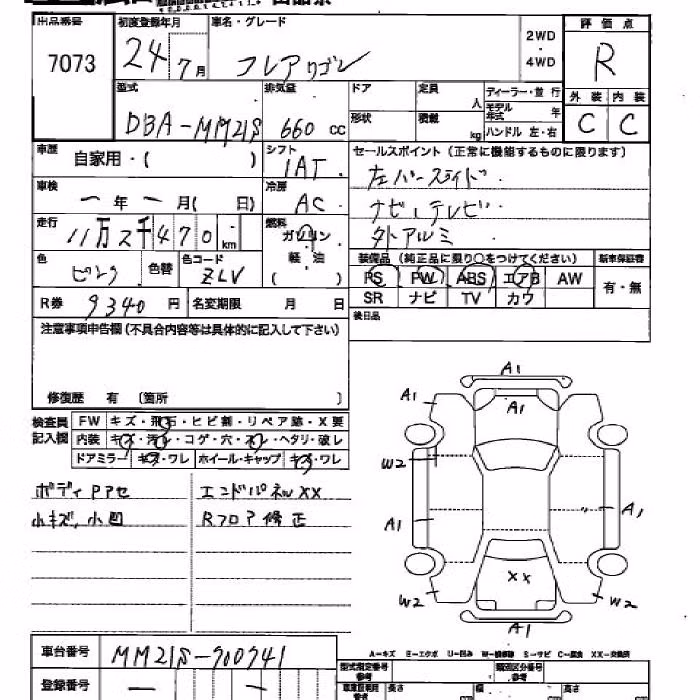 出品番号 初度登録年月 車名・グレード 2WD・4WD 評価点
7073 24年7月 フレアワゴン R
外装 内装
C C
型式 排気量 ドア 定員 人 ディーラー・並行
DBA-MM21S 660cc 形状 積載 kg モデル年式 年
ハンドル 左・右
車歴 自家用・( ) シフト 1AT セールスポイント(正常に機能するものに限ります)
左パースライド
車検 一年一月( 日) 冷房 AC ナビ、テレビ
走行 11万2千470km 燃料 ガソリン 外アルミ
軽油
( )
色 ピンク 色替 色コード ZLV 装備品(純正品に限り○をつけてください) 新車保証書
PS PW ABS エアB AW 有・無
SR ナビ TV カワ
R券 9340円 名変期限 月 日 後日品
注意事項申告欄(不具合内容等は具体的に記入して下さい)
修復歴 有 〔箇所 〕
検査員記入欄 FW キズ・飛石・ヒビ割・リペア跡・X要
内装 キズ・汚レ・コゲ・穴・スレ・ヘタリ・破レ
ドアミラー キズ・ワレ ホイール・キャップ キズ・ワレ
ボディPアセ エンドパネルXX
小キズ、小凹 Rフロア修正
A1
A1 A1
W2
A1 A1
XX
W2 W2
A1
A-キズ E-エクボ U-凹み W-補修跡 S-サビ C-腐食 XX-交換済
車台番号 MM21S-700741
登録番号 — —
型式指定番号 類別区分番号
長さ 幅 高さ